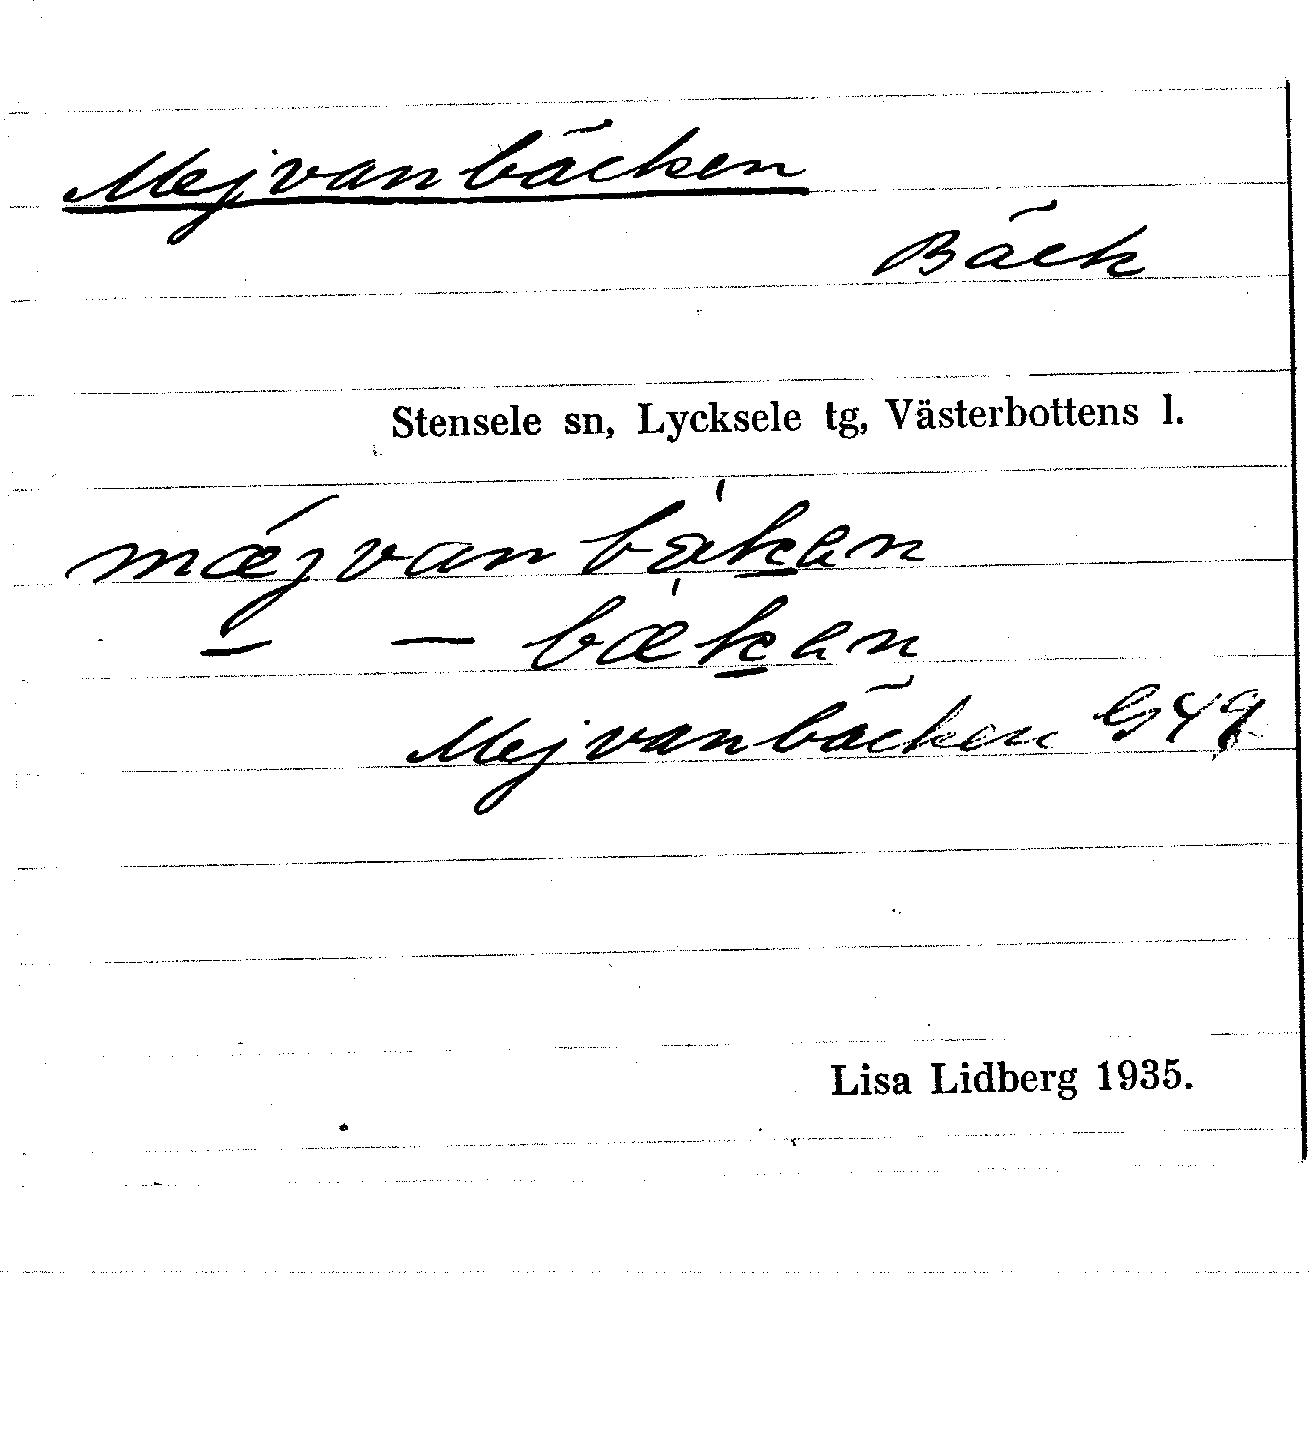 Mejvanbäcken
Bäck
Stensele sn, Lycksele tg, Västerbottens l.
mǽjvan bakan
– – bækan
Mejvanbäcken G49
Lisa Lidberg 1935.